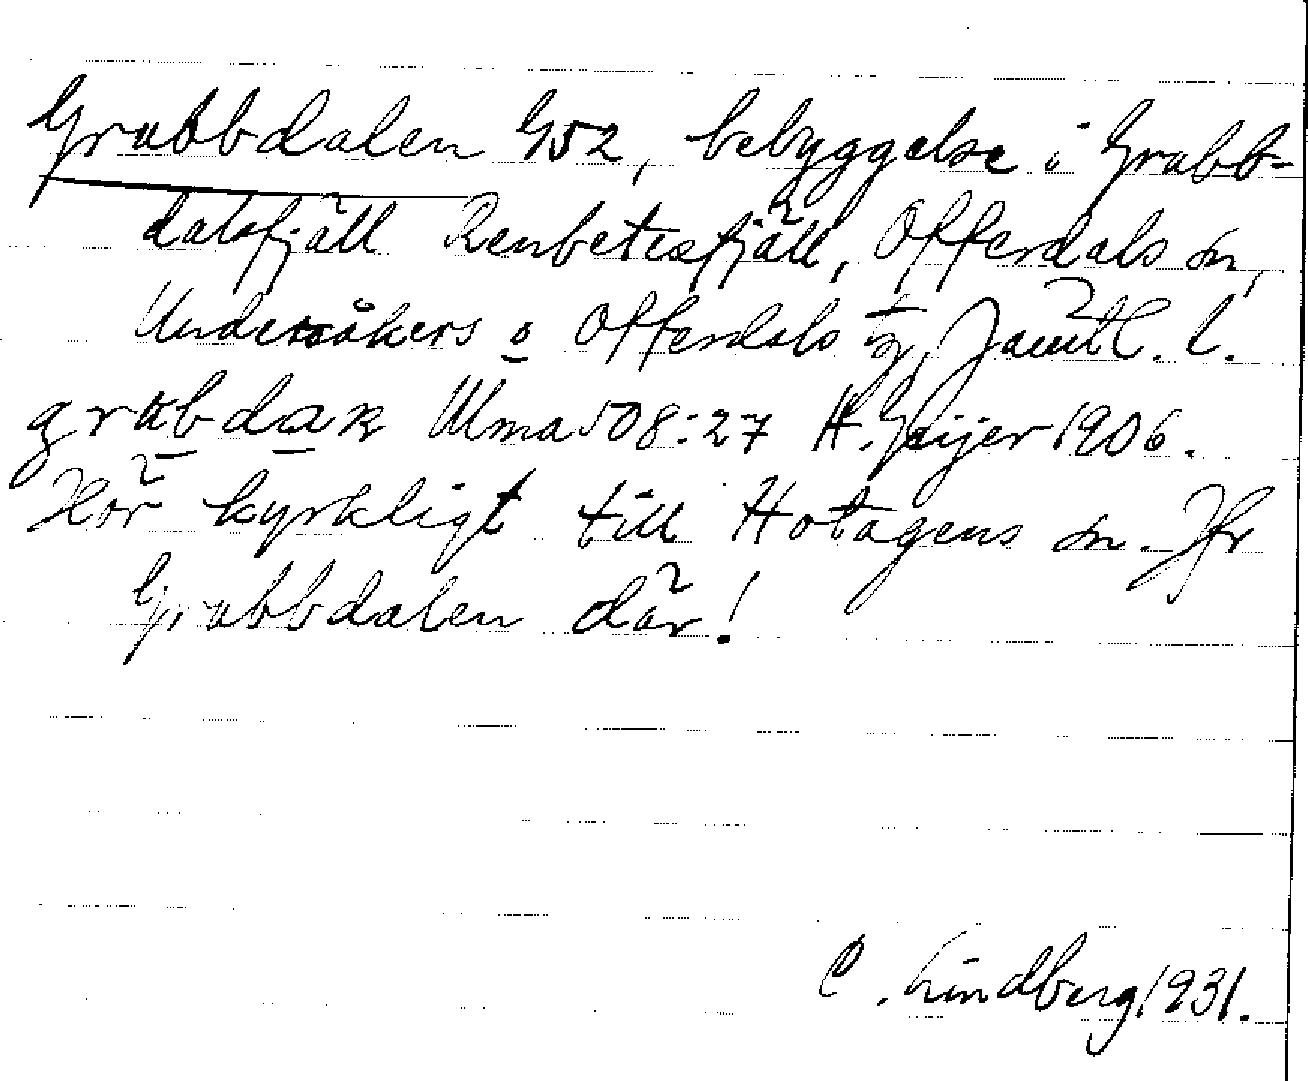 Grubbdalen G52, bebyggelse i Grubb-
dalsfjäll Renbetesfjäll, Offerdals sn,
Undersåkers o Offerdals tg, Jämtl. l.
Uma 508:27 H. Geijer 1906.
Hör kyrkligt till Hotagens sn. Jfr
Grubbdalen där!
C. Lindberg 1931.